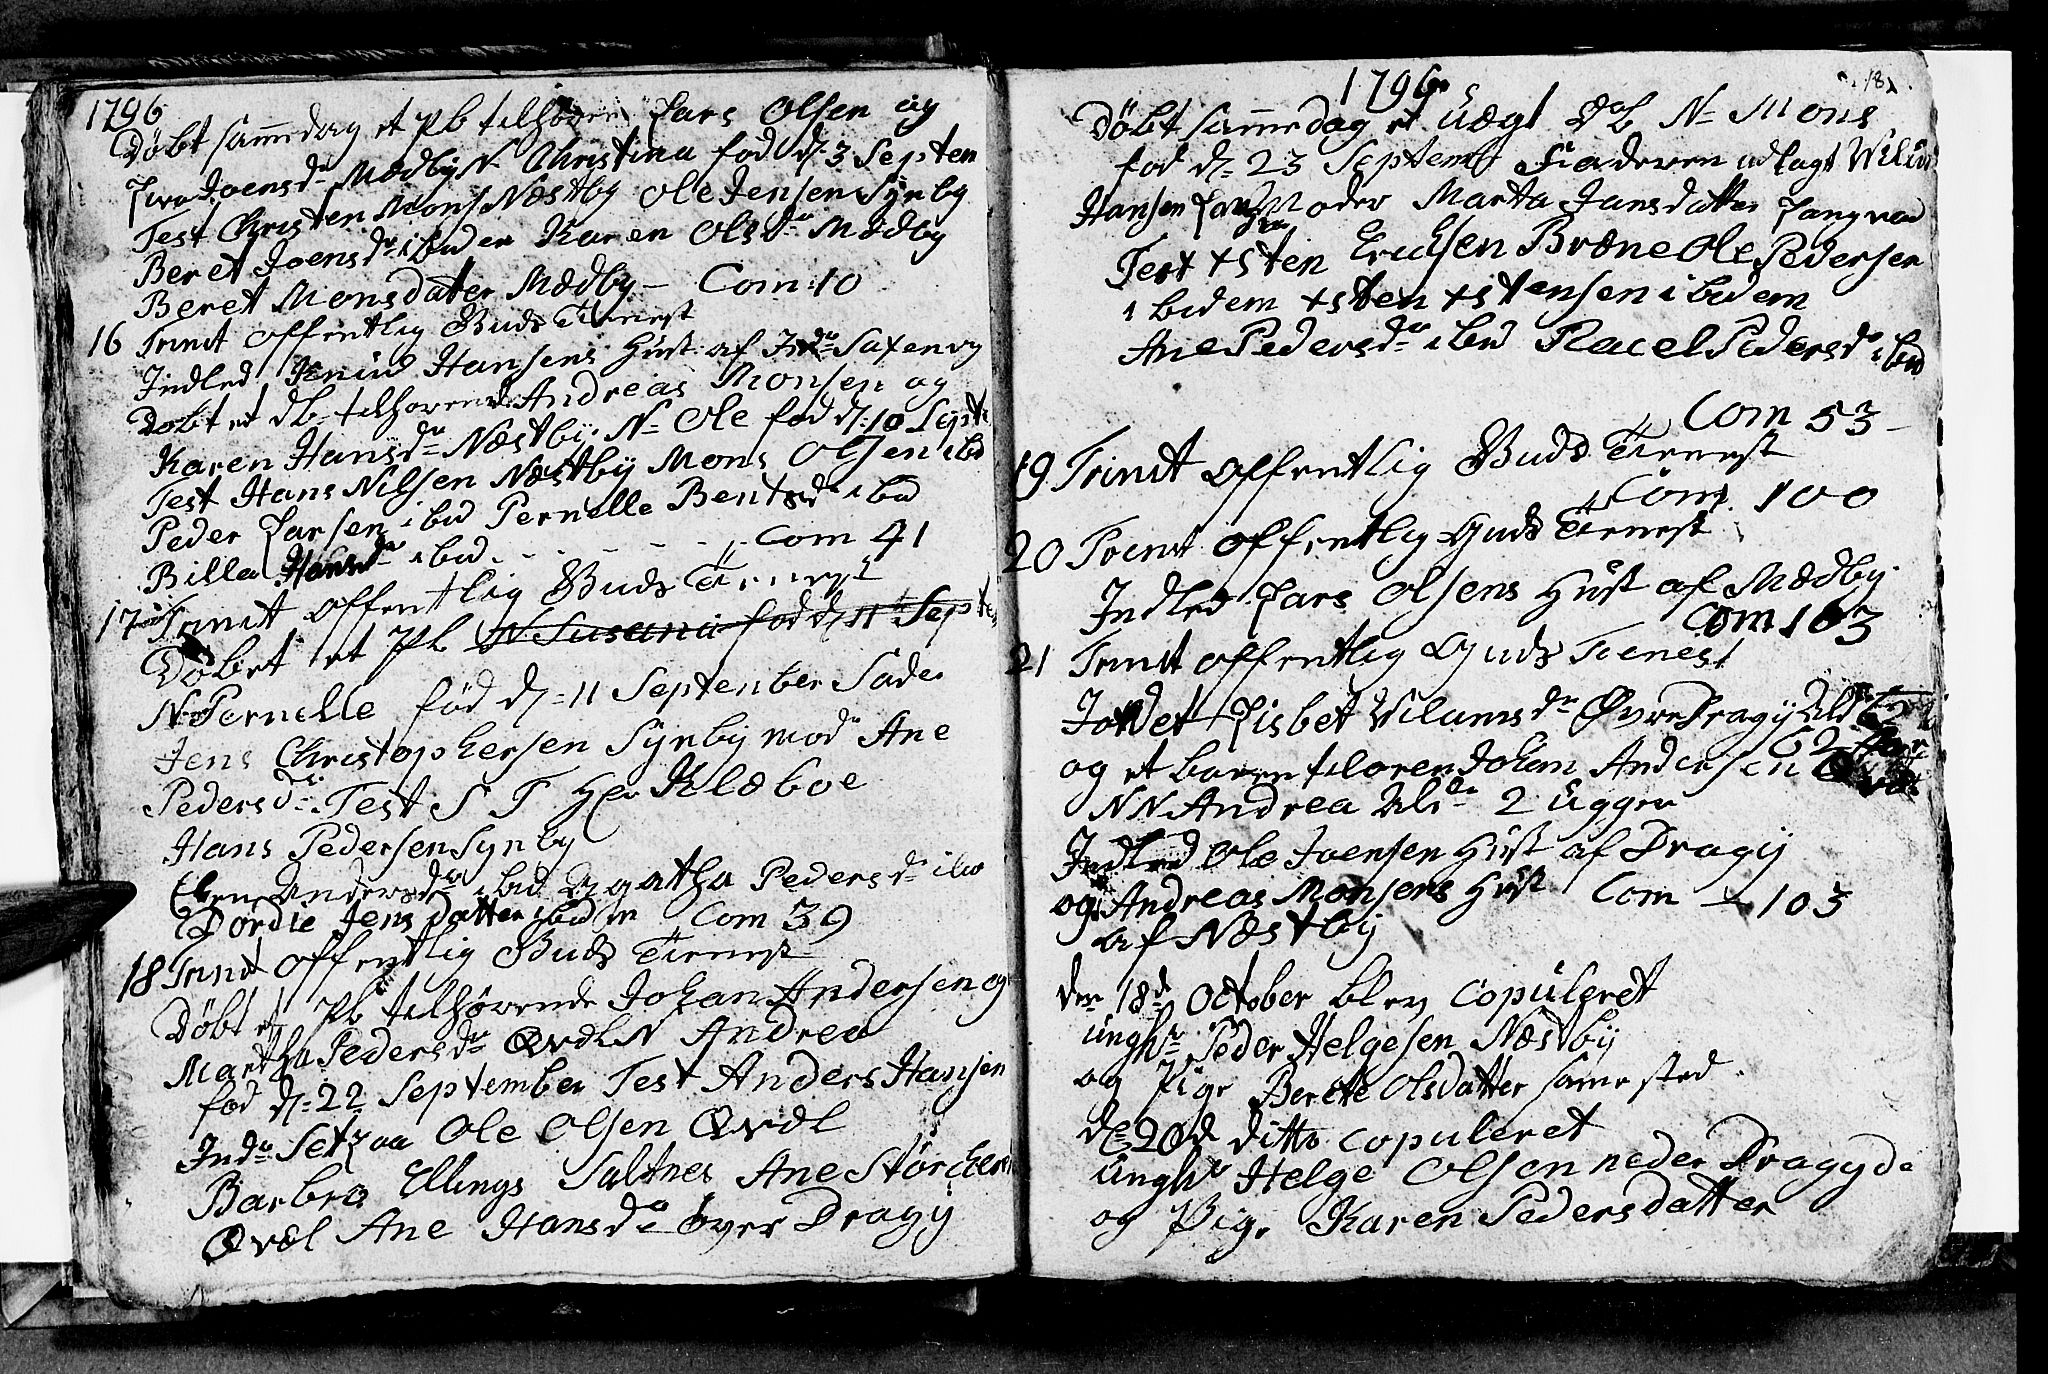 1796
Døbt samedag et Pb tilhøren Lars Olsen og
Joensd Mædby N Christina fød d. 3 Septem
Test Christen Mons Næstby Ole Jensen Synby
Beret Joensdr ibiden Karen Olsdr Mædby
Beret Monsdater Mædby – Com: 10
16 Trinit offentlig Guds Tienest
Indled Knud Hansens Hust: af Indr Saxenvg
Døbt et db tilhørend Andreas Monsen og
Karen Hansdr Næstby. N= Ole fød d: 10 Septr
Test Hans Nilsen Næstby Mons Olsen ibd
Peder Larsen ibd Pernelle Bentsdr ibd
Billa Hansdr ibd. - - - - - Com 41
17 Trinit offentlig Guds Tienest
Døbet et Pb N Susana fød d 11 Septe
N Pernelle fød d= 11 September Fader
Jens Christophersen Synby mod Ane
Pedersdr Test S T Hr Klæboe
Hans Pedersen Synby
Andersdr ibd Agatha Pedersdr ibd
Dordie Jens datter ibidem Com 39
18 Trinit offentlig Guds Tienest
Døbt et Pb tilhørende Johan Andersen og
Martha Pedersdr Qvdl N Andrea
fød d= 22 September Test Anders Hansen
Indr Setzaa Ole Olsen Qvdl
Barbro Ellings Saltnes Ane Storcher
Qvæl Ane Hansdr øvre Dragy
1796
Døbt same dag et uægt db N= Mons
fod d= 23 Septemb Fiaderen udlagt Wilum
Hansen Moder Marta Jansdatter Langvad
Test +sten Erichsen Bræne Ole Pedersen
ibidem +sten +stensen ibidem
Ane Pedersdr ibd Racel Pedersdr ibd
Com 53 –
19 Trinit offentlig Guds Tienest
Com. 100
20 Trinit offentlig Guds Tienest
Indled Lars Olsens Hust af Mædby.
Com 103
21 Trinit offentlig Guds Tienest
Jordet Lisbet Vilumsdr Øvre Dragy Ald 62
og et baren tiloren Johan Andersen
62
NN Andrea Aldr 2 Ugger
Indled Ole Joensen Hust af Dragy
og Andreas Monsens Hust Com 103
af Næstby
den 18d October blev Copuleret
ungkr Peder Helgesen Næstby
og Pige Berete Olsdatter same sted.
d= 20d ditto copuleret
ungkr Helge Olsen neder Dragy de
og Pige Karen Pedersdatter